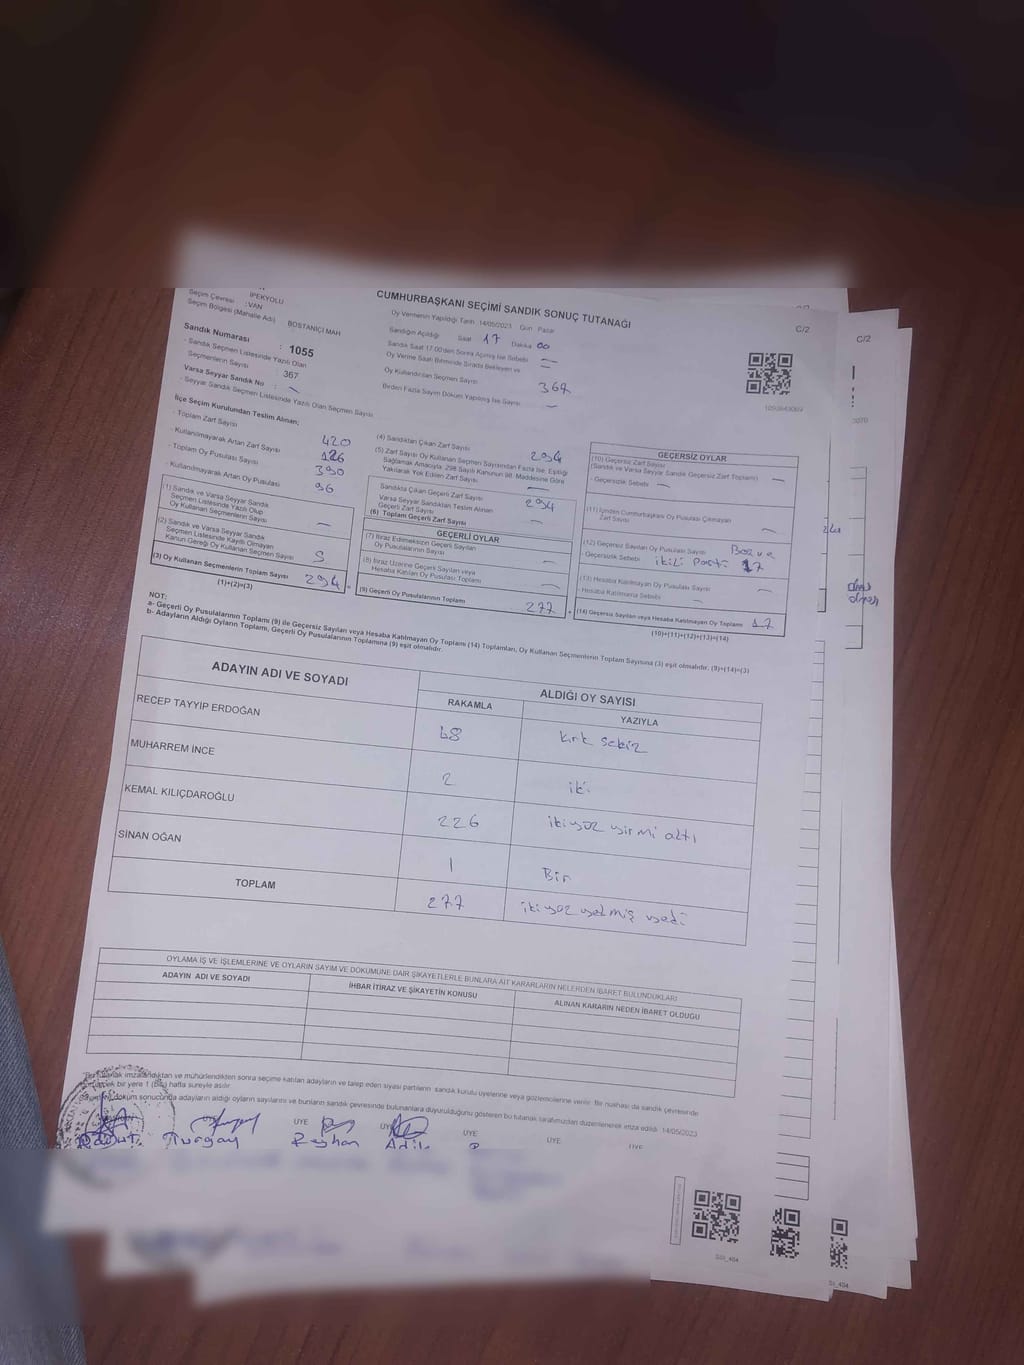 İPEKYOLU
Seçim Çevresi : VAN
Seçim Bölgesi (Mahalle Adı) BOSTANİÇİ MAH
Sandık Numarası : 1055
- Sandık Seçmen Listesinde Yazılı Olan
Seçmenlerin Sayısı : 367
Varsa Seyyar Sandık No : -
- Seyyar Sandık Seçmen Listesinde Yazılı Olan Seçmen Sayısı
CUMHURBAŞKANI SEÇİMİ SANDIK SONUÇ TUTANAĞI
C/2
Oy Vermenin Yapıldığı Tarih 14/05/2023 Gün Pazar
Sandığın Açıldığı Saat 17 Dakika 00
Sandık Saat 17.00'den Sonra Açılmış İse Sebebi
Oy Verme Saati Bitiminde Sırada Bekleyen ve
Oy Kullandırılan Seçmen Sayısı
367
Birden Fazla Sayım Döküm Yapılmış İse Sayısı -
İlçe Seçim Kurulundan Teslim Alınan;
- Toplam Zarf Sayısı 420
- Kullanılmayarak Artan Zarf Sayısı 126
- Toplam Oy Pusulası Sayısı 390
- Kullanılmayarak Artan Oy Pusulası 96
(1) Sandık ve Varsa Seyyar Sandık
Seçmen Listesinde Yazılı Olup
Oy Kullanan Seçmenlerin Sayısı -
(2) Sandık ve Varsa Seyyar Sandık
Seçmen Listesinde Kayıtlı Olmayan
Kanun Gereği Oy Kullanan Seçmen Sayısı
(3) Oy Kullanan Seçmenlerin Toplam Sayısı 294
(1)+(2)=(3)
(4) Sandıktan Çıkan Zarf Sayısı 294
(5) Zarf Sayısı Oy Kullanan Seçmen Sayısından Fazla İse, Eşitliği
Sağlamak Amacıyla, 298 Sayılı Kanunun 98. Maddesine Göre
Yakılarak Yok Edilen Zarf Sayısı -
Sandıkta Çıkan Geçerli Zarf Sayısı 294
Varsa Seyyar Sandıktan Teslim Alınan
Geçerli Zarf Sayısı -
(6) Toplam Geçerli Zarf Sayısı
GEÇERLİ OYLAR
(7) İtiraz Edilmeksizin Geçerli Sayılan
Oy Pusulalarının Sayısı -
(8) İtiraz Üzerine Geçerli Sayılan veya
Hesaba Katılan Oy Pusulası Toplamı -
(9) Geçerli Oy Pusulalarının Toplamı 277
GEÇERSİZ OYLAR
(10) Geçersiz Zarf Sayısı
(Sandık ve Varsa Seyyar Sandık Geçersiz Zarf Toplamı) -
- Geçersizlik Sebebi -
(11) İçinden Cumhurbaşkanı Oy Pusulası Çıkmayan
Zarf Sayısı -
(12) Geçersiz Sayılan Oy Pusulası Sayısı Boş ve
- Geçersizlik Sebebi ikili Parti 17
(13) Hesaba Katılmayan Oy Pusulası Sayısı -
- Hesaba Katılmama Sebebi -
(14) Geçersiz Sayılan veya Hesaba Katılmayan Oy Toplamı 17
(10)+(11)+(12)+(13)=(14)
NOT:
a- Geçerli Oy Pusulalarının Toplamı (9) ile Geçersiz Sayılan veya Hesaba Katılmayan Oy Toplamı (14) Toplamları, Oy Kullanan Seçmenlerin Toplam Sayısına (3) eşit olmalıdır. (9)+(14)=(3)
b- Adayların Aldığı Oyların Toplamı, Geçerli Oy Pusulalarının Toplamına (9) eşit olmalıdır.
ADAYIN ADI VE SOYADI
ALDIĞI OY SAYISI
RAKAMLA YAZIYLA
RECEP TAYYİP ERDOĞAN 48 kırk sekiz
MUHARREM İNCE 2 iki
KEMAL KILIÇDAROĞLU 226 ikiyüz yirmi altı
SİNAN OĞAN 1 Bir
TOPLAM 277 ikiyüz yetmiş yedi
OYLAMA İŞ VE İŞLEMLERİNE VE OYLARIN SAYIM VE DÖKÜMÜNE DAİR ŞİKAYETLERLE BUNLARA AİT KARARLARIN NELERDEN İBARET BULUNDUKLARI
ADAYIN ADI VE SOYADI İHBAR İTİRAZ VE ŞİKAYETİN KONUSU ALINAN KARARIN NEDEN İBARET OLDUĞU
imzalandıktan ve mühürlendikten sonra seçime katılan adayların ve talep eden siyasi partilerin sandık kurulu üyelerine veya gözlemcilerine verilir. Bir nüshası da sandık çevresinde
bir yere 1 (Bir) hafta süreyle asılır.
döküm sonucunda adayların aldığı oyların sayılarını ve bunların sandık çevresinde bulunanlara duyurulduğunu gösteren bu tutanak tarafımızdan düzenlenerek imza edildi. 14/05/2023
ÜYE ÜYE ÜYE ÜYE ÜYE
Turgay Reyhan Adile
C/2
SSI_404